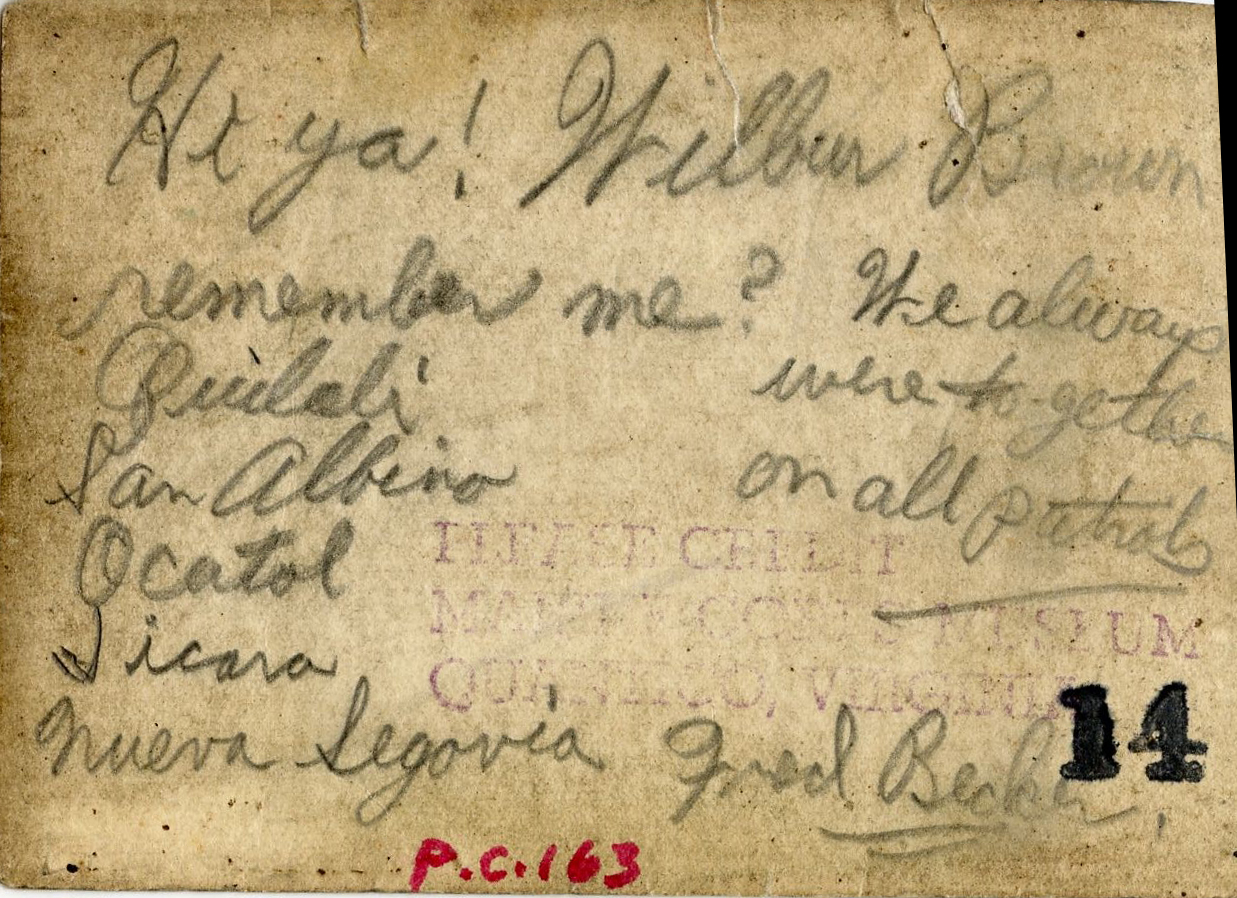 Hi ya! Wilbur Brown
remember me? We always
were together
on all patrols
Quilali
San Albino
Ocatol
Jicara
Nueva Segovia
Fred Becker
PLEASE CREDIT
MARINE CORPS MUSEUM
QUANTICO, VIRGINIA
14
P.C.163